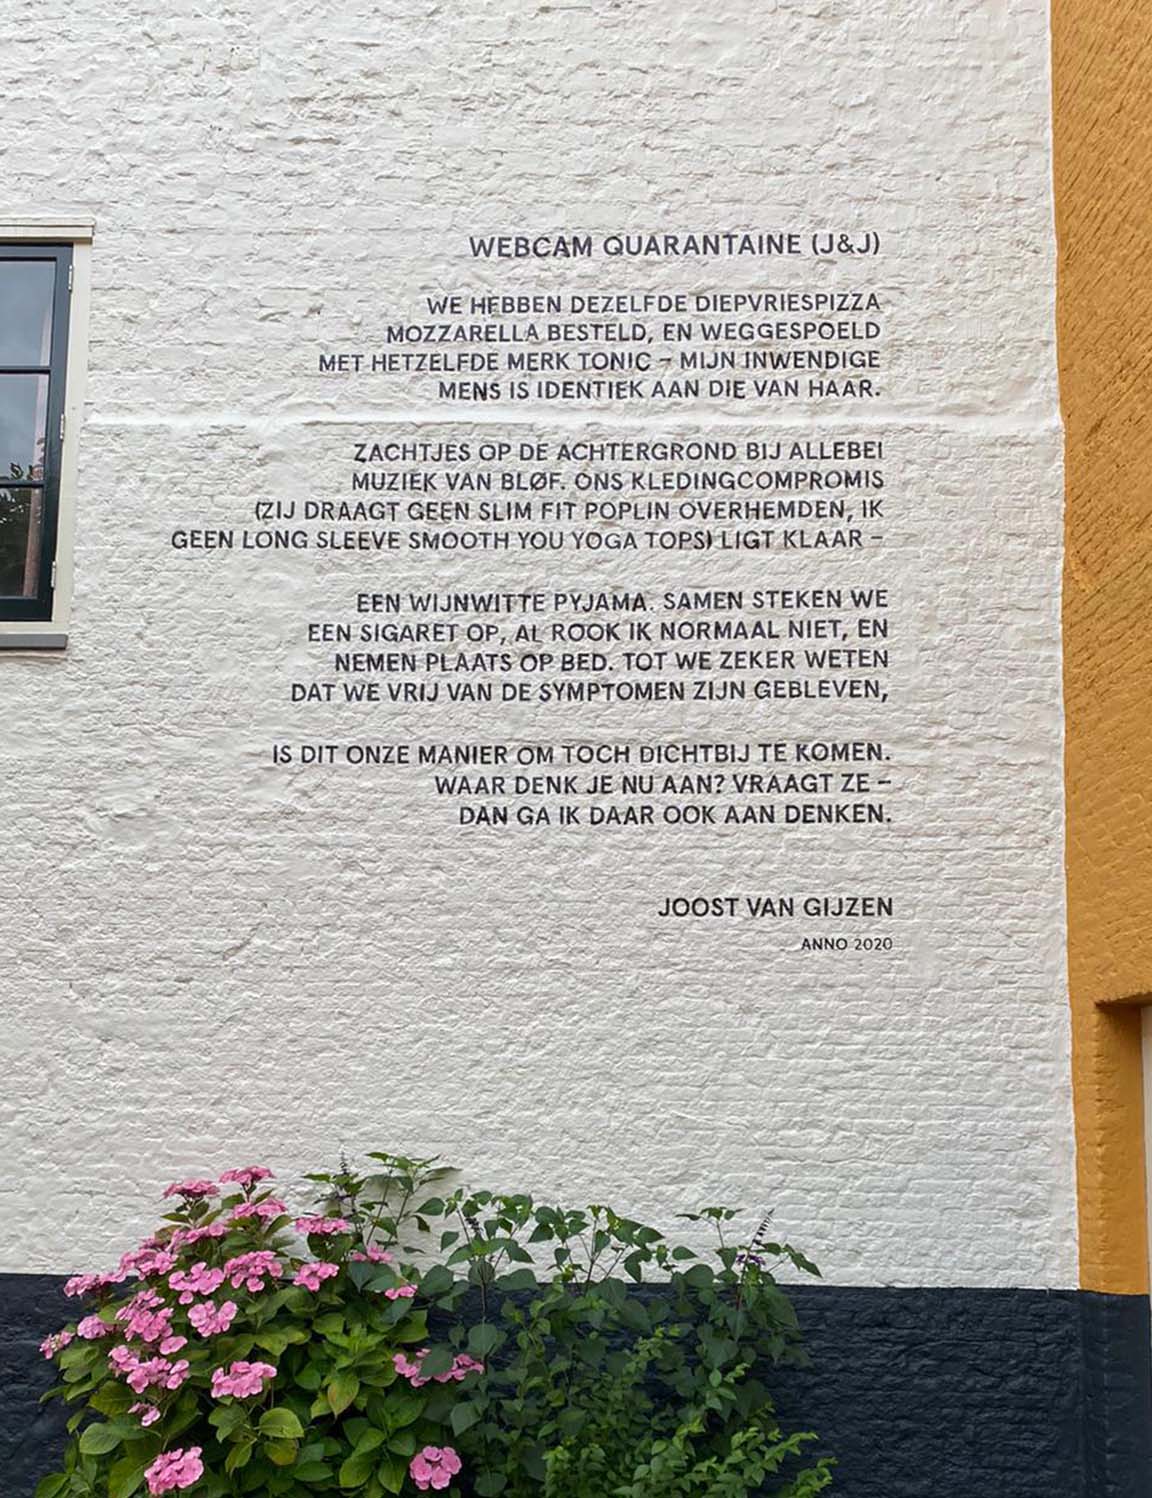 WEBCAM QUARANTAINE (J&J)
WE HEBBEN DEZELFDE DIEPVRIESPIZZA
MOZZARELLA BESTELD, EN WEGGESPOELD
MET HETZELFDE MERK TONIC – MIJN INWENDIGE
MENS IS IDENTIEK AAN DIE VAN HAAR.
ZACHTJES OP DE ACHTERGROND BIJ ALLEBEI
MUZIEK VAN BLØF. ONS KLEDINGCOMPROMIS
(ZIJ DRAAGT GEEN SLIM FIT POPLIN OVERHEMDEN, IK
GEEN LONG SLEEVE SMOOTH YOU YOGA TOPS) LIGT KLAAR –
EEN WIJNWITTE PYJAMA. SAMEN STEKEN WE
EEN SIGARET OP, AL ROOK IK NORMAAL NIET, EN
NEMEN PLAATS OP BED. TOT WE ZEKER WETEN
DAT WE VRIJ VAN DE SYMPTOMEN ZIJN GEBLEVEN,
IS DIT ONZE MANIER OM TOCH DICHTBIJ TE KOMEN.
WAAR DENK JE NU AAN? VRAAGT ZE –
DAN GA IK DAAR OOK AAN DENKEN.
JOOST VAN GIJZEN
ANNO 2020